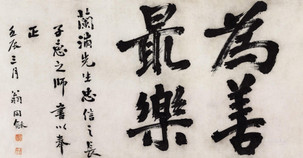 為善
最樂
蘭浦先生忠信之長
子惠之師書以奉
正
壬辰三月 翁同龢